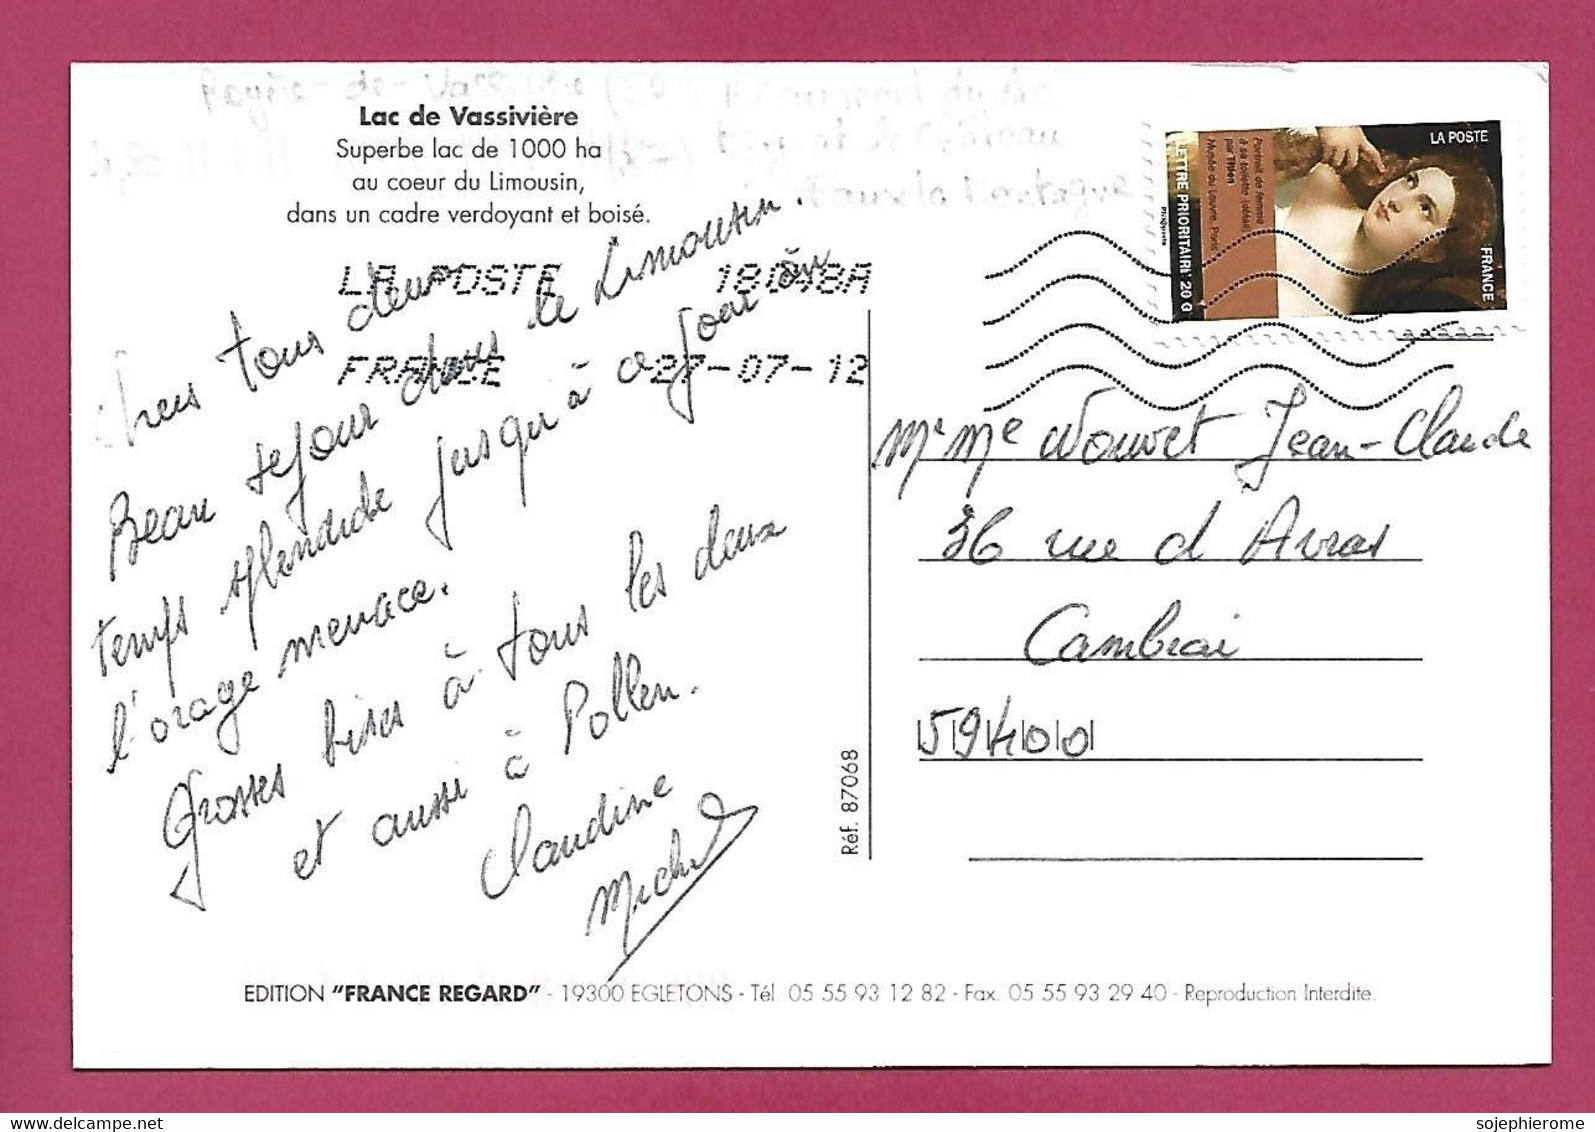 Lac de Vassivière
Superbe lac de 1000 ha
au coeur du Limousin,
dans un cadre verdoyant et boisé.
LA POSTE 18048A
FRANCE 27-07-12
Chers tous deux
Beau séjour dans le Limousin.
temps splendide jusqu'à ce jour où
l'orage menace.
Grosses bises à tous les deux
et aussi à Pollen.
Claudine
Michel
LA POSTE
FRANCE
LETTRE PRIORITAIRE 20 G
Portrait de femme
à sa toilette (détail)
par Titien
Musée du Louvre, Paris
Phil@poste
Mr Me Wouvet Jean-Claude
36 rue d Arras
Cambrai
59400
Réf. 87068
EDITION "FRANCE REGARD" - 19300 EGLETONS - Tél. 05 55 93 12 82 - Fax. 05 55 93 29 40 - Reproduction Interdite.
sojephierome